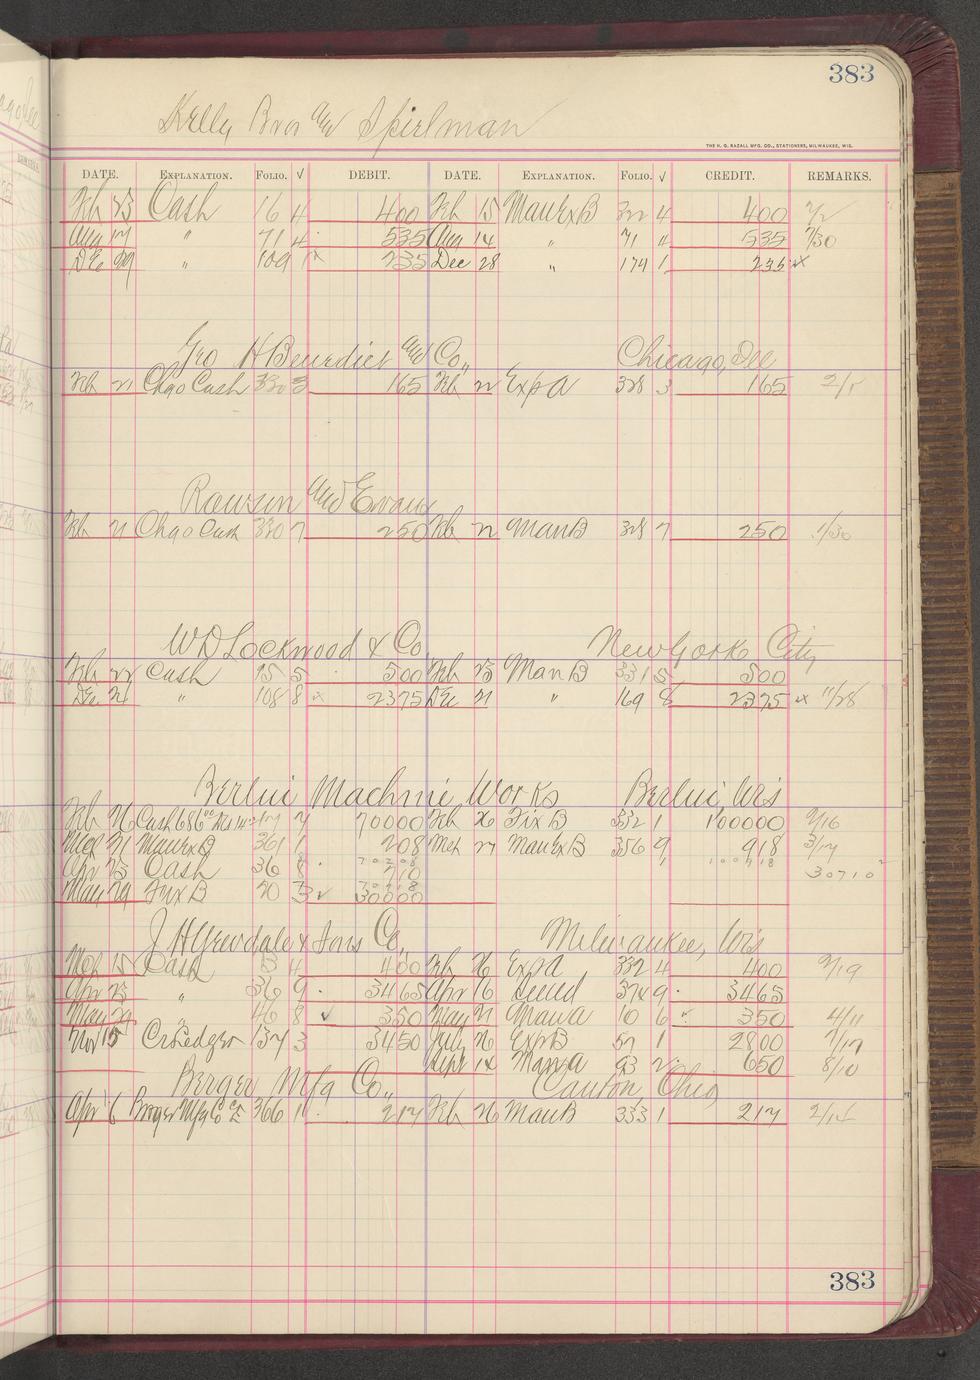 383
Kelly Bros and Spielman
THE H. G. RAZALL MFG. CO., STATIONERS, MILWAUKEE, WIS.
DATE. EXPLANATION. FOLIO. ✓ DEBIT. DATE. EXPLANATION. FOLIO. ✓ CREDIT. REMARKS.
Feb 23 Cash 16 4 400 Feb 15 Man Ex B 322 4 400 2/2
Aug 17 " 71 4 535 Aug 14 " 71 4 535 7/30
Dec 29 " 109 1 235 Dec 28 " 174 1 235
Geo H Benedict and Co., Chicago, Ill
Feb 21 Chgo Cash 330 3 165 Feb 22 Exp A 328 3 165 2/1
Rawson and Evans
Feb 21 Chgo Cash 330 7 250 Feb 22 Man B 328 7 250 1/30
W D Lockwood & Co. New York City
Feb 22 Cash 15 5 500 Feb 23 Man B 331 5 500
Dec 21 " 108 8 2375 Dec 21 " 169 8 2375 11/28
Berlin Machine Works Berlin, Wis
Feb 26 Cash 686 70000 Feb 26 Fix B 332 1 100000 2/16
Mch 21 Man Ex B 361 1 208 Mch 27 Man Ex B 356 9 918 3/17
Apr 23 Cash 36 8 710 30710
May 29 Fix B 20 3 ✓ 30000
J H Yewdale & Sons Co., Milwaukee, Wis
Mch 15 Cash 4 400 Feb 26 Exp A 332 4 400 2/19
Apr 23 " 36 9 3465 Apr 16 374 9 3465
May 29 " 46 8 ✓ 350 May 21 Man A 10 6 350 4/11
Nov 15 Cr Ledger 137 3 3450 July 26 Exp B 57 1 2800 7/17
Sept 14 Man A 93 2 650 8/10
Berger Mfg Co., Canton, Ohio
Apr 6 Berger Mfg Co 366 1 217 Feb 26 Man B 333 1 217 2/14
383